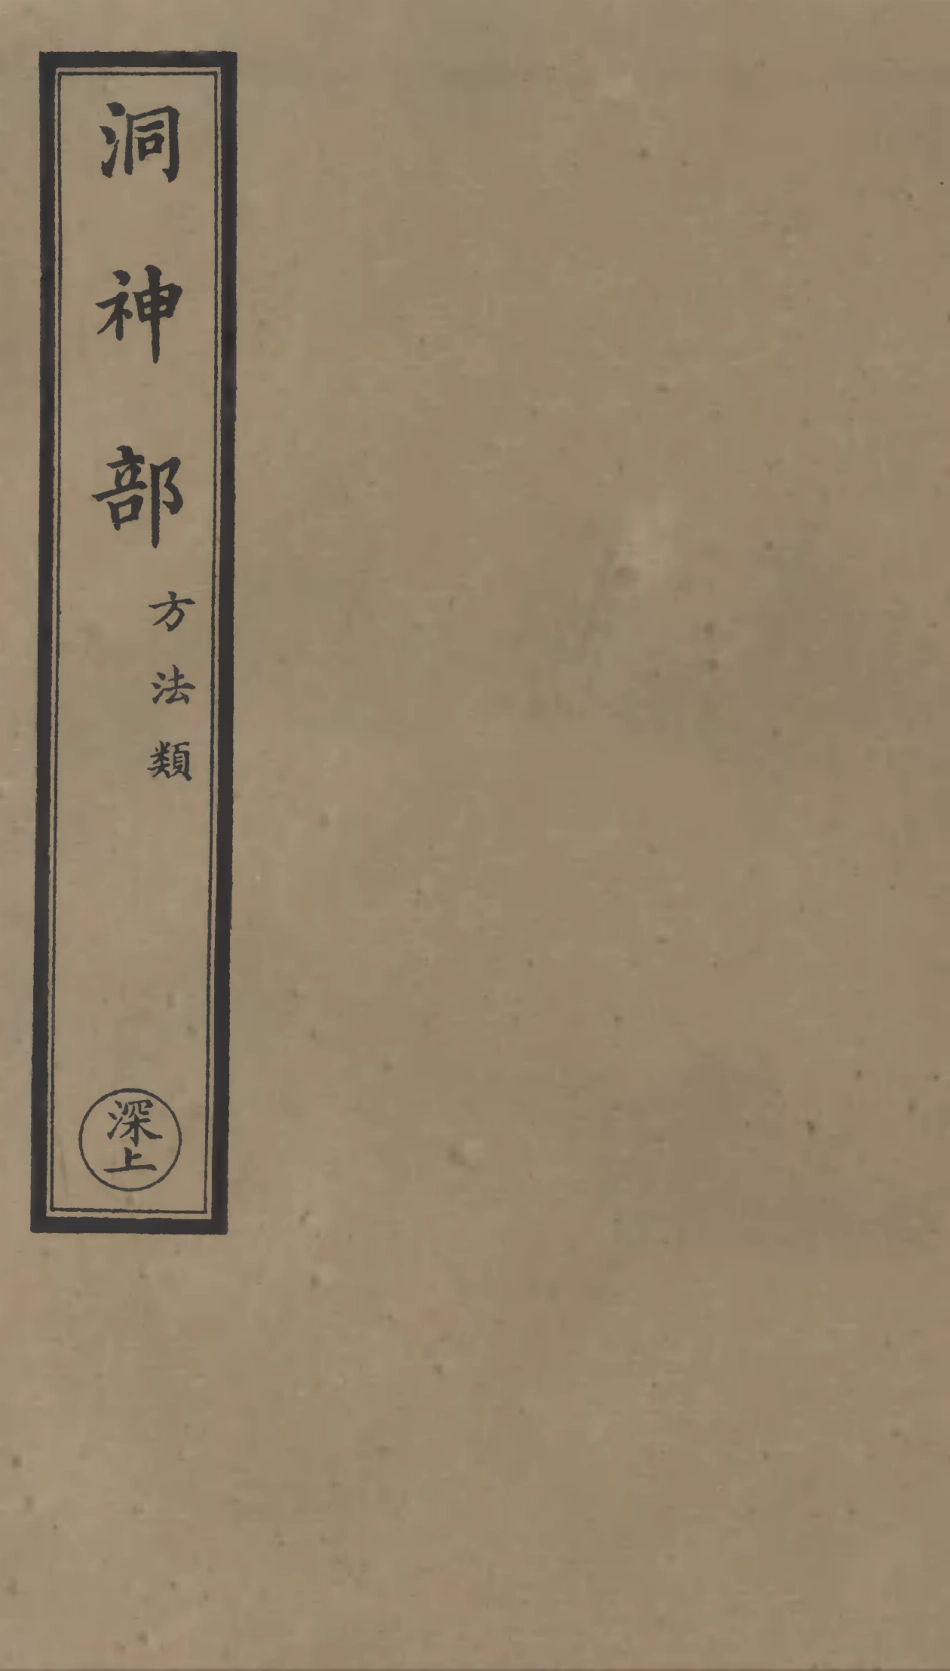 洞神部
方法類
深上